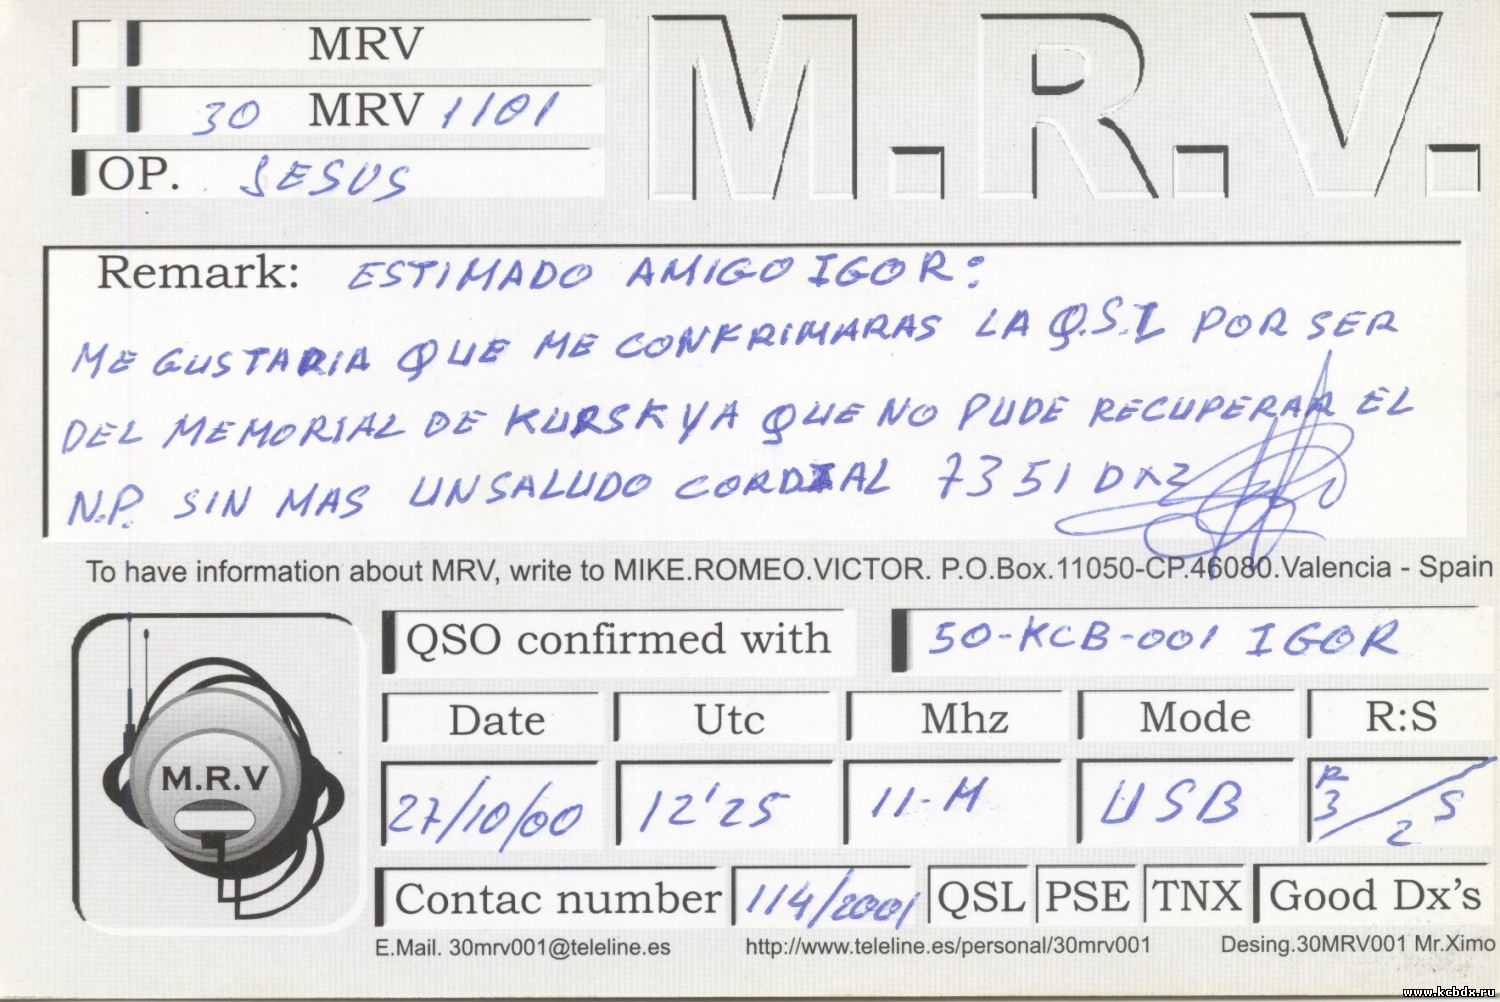 MRV
30 MRV 1101
OP. JESUS
M.R.V.
Remark: ESTIMADO AMIGO IGOR:
ME GUSTARIA QUE ME CONFRIMARAS LA Q.S.L POR SER
DEL MEMORIAL DE KURSK YA QUE NO PUDE RECUPERAR EL
N.P. SIN MAS UN SALUDO CORDIAL 73 51 DXZ
To have information about MRV, write to MIKE.ROMEO.VICTOR. P.O.Box.11050-CP.46080.Valencia - Spain
QSO confirmed with 50-KCB-001 IGOR
Date Utc Mhz Mode R:S
27/10/00 12'25 11-M USB R 3/2 S
M.R.V
Contac number 114/2001 QSL PSE TNX Good Dx's
E.Mail. 30mrv001@teleline.es http://www.teleline.es/personal/30mrv001 Desing.30MRV001 Mr.Ximo
www.kcbdx.ru